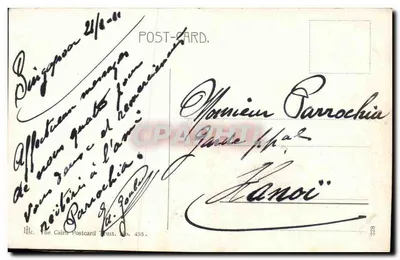 POST-CARD.
Singapoor 21/8-11
Affectueux messages
de nous quatre pour
vous deux et remerciements
réitérés à l'ami
Parrochia.
Ed.
Monsieur Parrochia
Garde ppal
Hanoï
The Cairo Postcard Trust. No. 430.